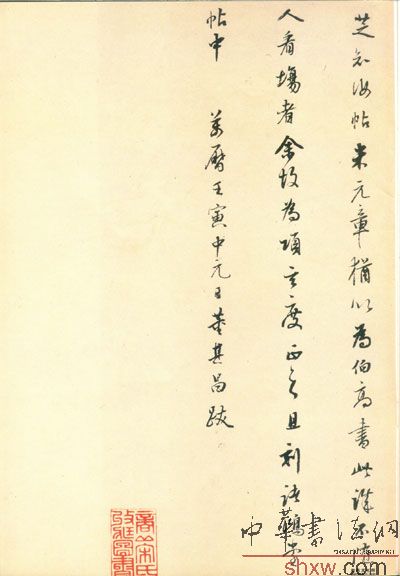 芝知汝帖米元章猶以為伯高書此
人看場者余故為項玄度正之且刻諸鴻堂
帖中 萬曆壬寅中元日董其昌跋
中華書法網
shxw.com